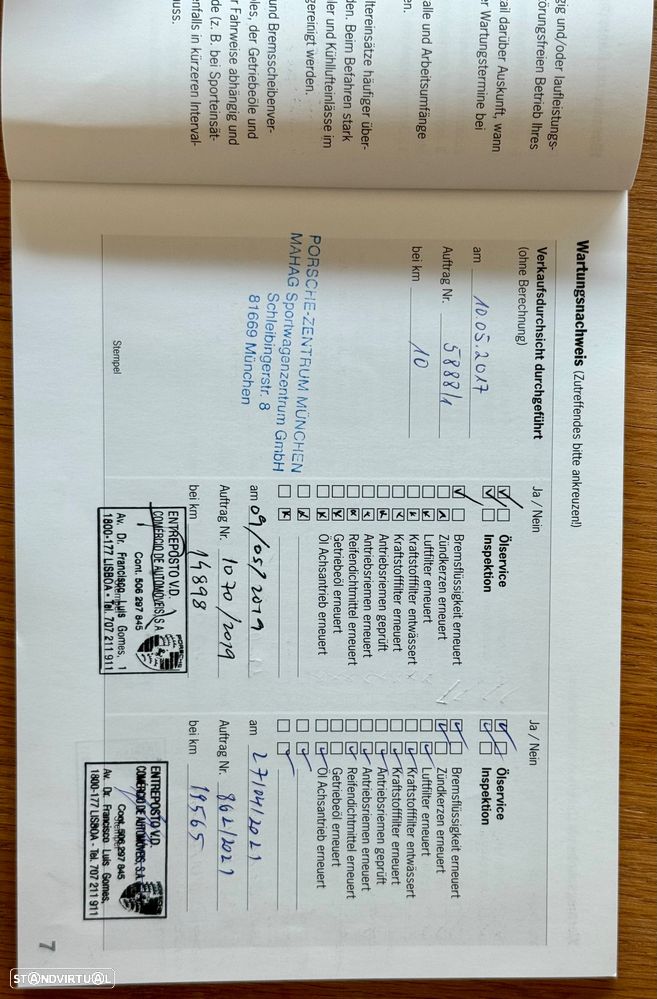 gig und/oder laufleistungs-
törungsfreien Betrieb Ihres
ail darüber Auskunft, wann
er Wartungstermine bei
alle und Arbeitsumfänge
en.
ltereinsätze häufiger über-
den. Beim Befahren stark
ler und Kühllufteinlässe im
gereinigt werden.
und Bremsscheibenver-
les, der Getriebeöle und
r Fahrweise abhängig und
de (z. B. bei Sporteinsät-
enfalls in kürzeren Interval-
uss.
Wartungsnachweis (Zutreffendes bitte ankreuzen!)
Verkaufsdurchsicht durchgeführt
(ohne Berechnung)
am 10.05.2017
Auftrag Nr. 5888/1
bei km 10
PORSCHE-ZENTRUM MÜNCHEN
MAHAG Sportwagenzentrum GmbH
Schleibingerstr. 8
81669 München
Stempel
Ja / Nein
Ölservice
Inspektion
Bremsflüssigkeit erneuert
Zündkerzen erneuert
Luftfilter erneuert
Kraftstofffilter entwässert
Kraftstofffilter erneuert
Antriebsriemen geprüft
Antriebsriemen erneuert
Reifendichtmittel erneuert
Getriebeöl erneuert
Öl Achsantrieb erneuert
am 09/05/2019
Auftrag Nr. 1070/2019
bei km 14898
ENTREPOSTO V.D.
COMÉRCIO DE AUTOMÓVEIS, S.A.
Cont. 506 297 845
Av. Dr. Francisco Luis Gomes, 1
1800-177 LISBOA - Tel. 707 211 911
PORSCHE
Ja / Nein
Ölservice
Inspektion
Bremsflüssigkeit erneuert
Zündkerzen erneuert
Luftfilter erneuert
Kraftstofffilter entwässert
Kraftstofffilter erneuert
Antriebsriemen geprüft
Antriebsriemen erneuert
Reifendichtmittel erneuert
Getriebeöl erneuert
Öl Achsantrieb erneuert
am 27/04/2021
Auftrag Nr. 862/2021
bei km 19565
ENTREPOSTO V.D.
COMÉRCIO DE AUTOMÓVEIS, S.A.
Cont. 506 297 845
Av. Dr. Francisco Luis Gomes,
1800-177 LISBOA - Tel. 707 211 911
7
STANDVIRTUAL